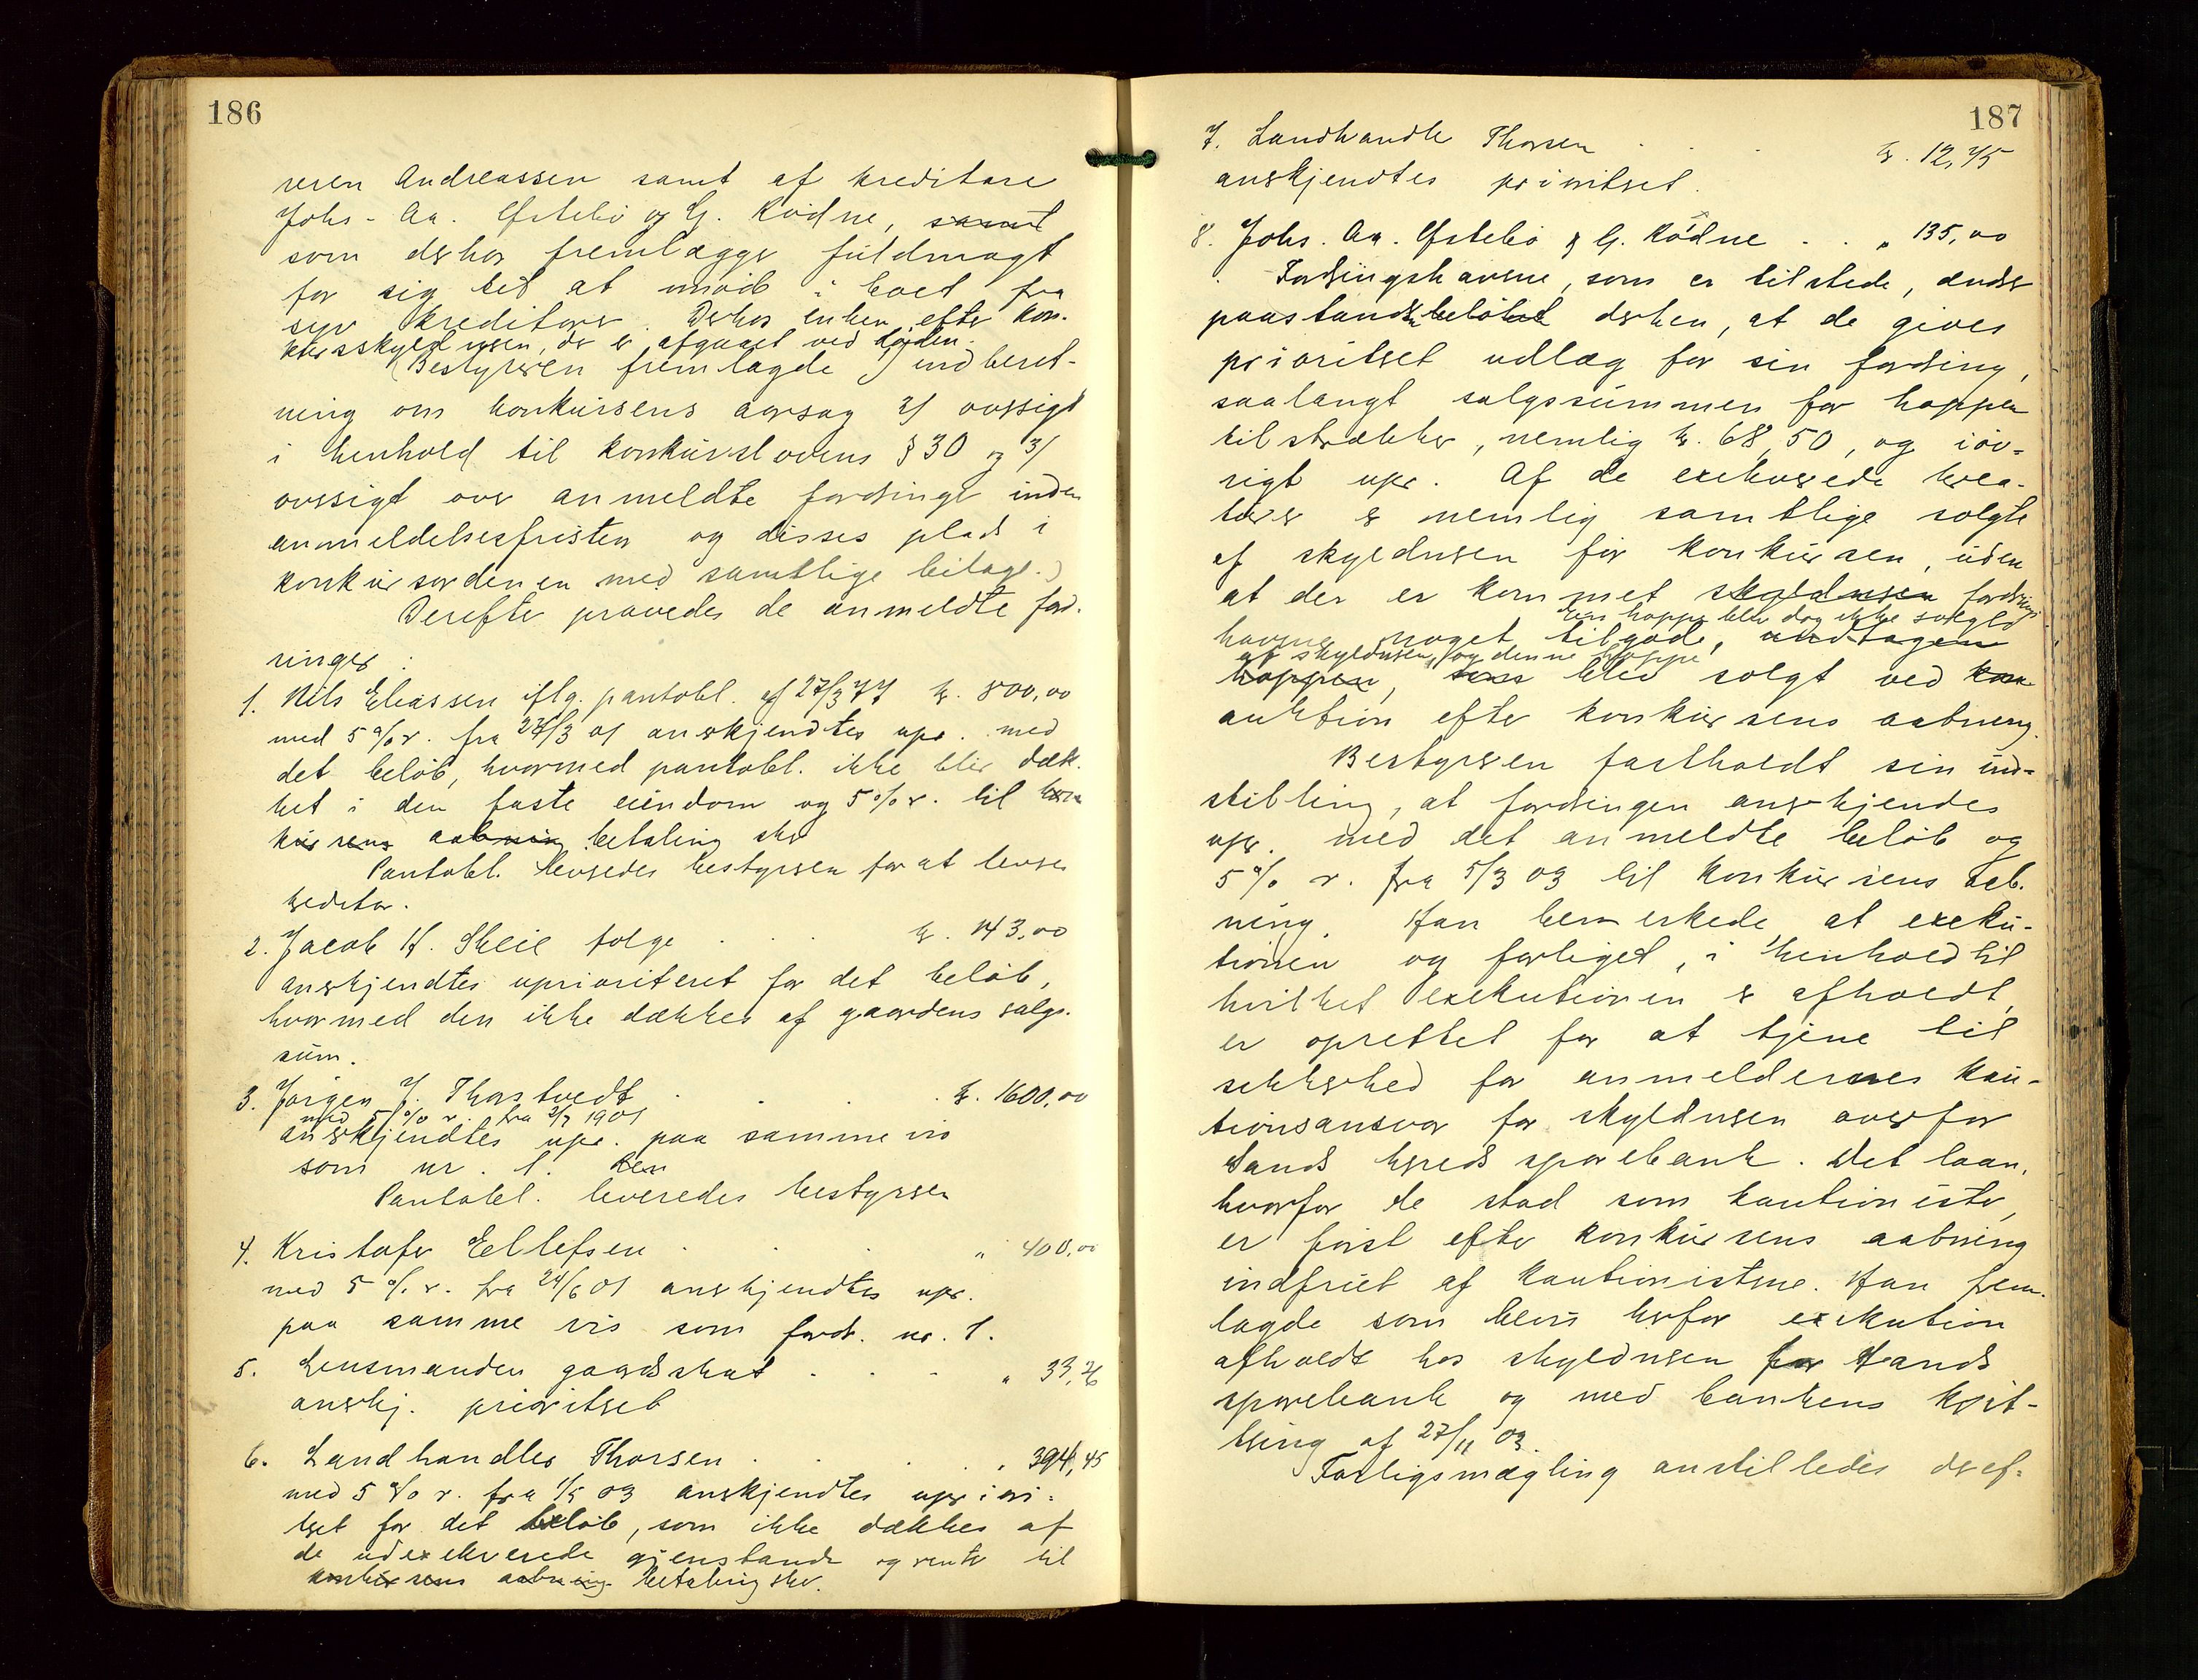 186
reren Andreassen samt af kreditore
Johs. Aa. Østebö og G. Rödne, samt
som derhos fremlægger fuldmagt
for sig til at møde i boet fra
syv kreditorer. Derhos enken efter kon-
kursskyldneren, der er afgaaet ved døden.
(Bestyreren fremlagde 1) indberet-
ning om konkursens aarsag 2) oversigt
i henhold til konkurslovens § 30 og 3)
oversigt over anmeldte fordringer inden
anmeldelsesfristen og disses plads i
konkursordenen med samtlige bilage.)
Derefter prøvedes de anmeldte ford-
ringer:
1. Nils Eliassen iflg. pantobl. af 27/3 77 kr. 800,00
med 5 % r. fra 27/3 01 anerkjendtes upr. med
det beløb, hvormed pantobl. ikke blir dæk-
ket i den faste eiendom og 5 % r. til kon
kursens aabning betaling sker
Pantobl. leveredes bestyreren for at leveres
kreditor.
2. Jacob K. Skeie følge . . . kr. 143,00
anerkjendtes uprioriteret for det beløb,
hvormed den ikke dækkes af gaardens salgs-
sum.
3. Jörgen J. Thorstvedt . . . kr. 1600,00
med 5 % r. fra 2/7 1901
anerkjendtes upr. paa samme vis
som nr. 1. Den
Pantobl. leveredes bestyreren
4. Kristofer Eellefsen . . . " 400,00
med 5 % r. fra 24/6 01 anerkjendtes upr.
paa samme vis som ford. nr. 1.
5. Lensmanden gaardskat . . . " 33,26
anerkj. prioritset
6. Landhandler Thorsen . . . " 394,45
med 5 % r. fra 1/5 03 anerkjendtes upriori-
teret for det beløb, som ikke dækkes af
de udexekverede gjenstande og rente til
konkursens aabning betaling sker.
187
7. Landhandler Thorsen . . . kr. 12,75
anerkjendtes prioritset.
8. Johs. Aa. Østebö & G. Rödne . . " 135,00
Fordringshaverne, som er tilstede, endrer
paastanden beløbet derhen, at de gives
prioritset udlæg for sin fordring,
saalangt salgssummen for hoppen
tilstrækker, nemlig kr. 68,50, og iøv-
rigt upr. Af de exekverede krea-
turer er nemlig samtlige solgte
af skyldneren før konkursen, uden
at der er kommet skyldneren fordrings
Den hoppe blev dog ikke solgt
haverne noget tilgode, undtagen
af skyldneren, og denne hoppe
hoppen, som blev solgt ved kon
auktion efter konkursens aabning.
Bestyreren fastholdt sin ind-
stilling, at fordringen anerkjendes
upr. med det anmeldte beløb og
5 % r. fra 5/3 03 til konkursens aab-
ning. Han bemerkede at exeku-
tionen og forliget, i henhold til
hvilket exekutionen er afholdt,
er oprettet for at tjene til
sikkerhed for anmeldernes kau-
tionsansvar for skyldneren overfor
Sands herreds sparebank. Det laan,
hvorfor de stod som kautionister,
er først efter konkursens aabning
indfriet af kautionisterne. Han frem-
lagde som bevis herfor exekution
afholdt hos skyldneren for Sands
sparebank og med bankens kvit-
tering af 27/11 03.
Forligsmægling anstilledes deref-